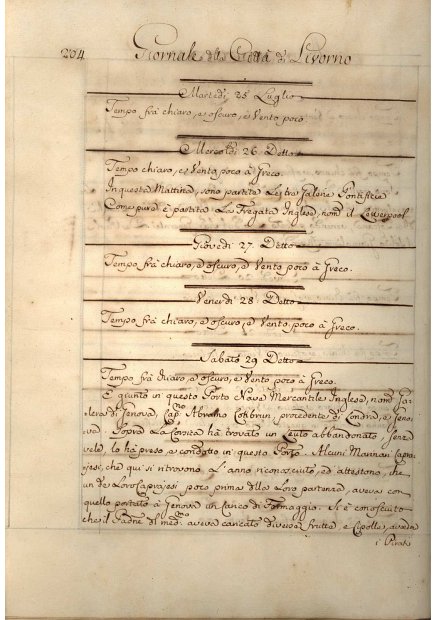 204 Giornale della Città di Livorno
Martedì 25 Luglio
Tempo frà chiaro, e oscuro, e Vento poco
Mercoldì 26 Detto
Tempo chiaro, e Vento poco à Greco.
In questa Mattina, sono partite Le tre Galere Pontificie
Come pure è partita La Fregata Inglese, nom.ª il Lewerpool
Giovedì 27. Detto
Tempo frà chiaro, e oscuro, e Vento poco à Greco.
Venerdì 28 Detto
Tempo frà chiaro, e oscuro, e Vento poco à Greco.
Sabato 29 Detto
Tempo frà chiaro, e oscuro, e Vento poco à Greco.
È giunto in questo Porto Nave Mercantile Inglese, nom.ª
di Genova, Cap.no Abramo procedente di Londra, e Geno
va. Sopra La Corsica hà trovato un Leuto abbandonato senza
vele, lo hà preso, e condotto in questo Porto. Alcuni Marinari Capra
jesi, che qui si ritrovono L'anno riconosciuto, ed attestono, che
un de Loro Caprajesi poco prima della Loro partenza, aveva con
quello portato à Genova un carico di Formaggio. Si è conosciuto
che il Padne del med.mo aveva caricato diverse frutta, e Cipolle,
i Pirati